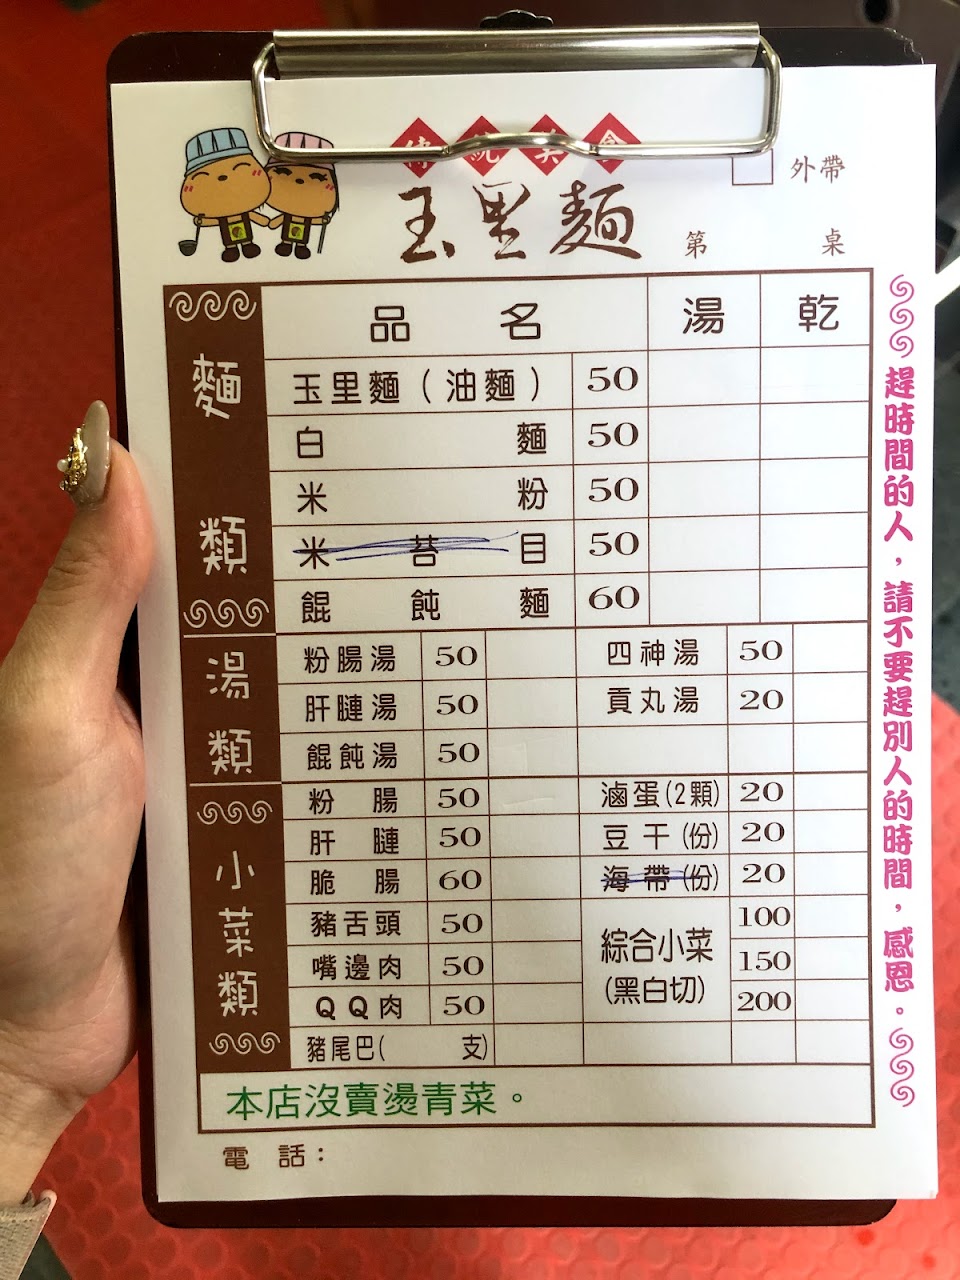 傳統美食
外帶
玉里麵
第 桌
品 名 湯 乾
麵類
玉里麵(油麵) 50
白 麵 50
米 粉 50
米 苔 目 50
餛 飩 麵 60
湯類
粉腸湯 50 四神湯 50
肝腱湯 50 貢丸湯 20
餛飩湯 50
小菜類
粉 腸 50 滷蛋(2顆) 20
肝 腱 50 豆干(份) 20
脆 腸 60 海帶(份) 20
豬舌頭 50 綜合小菜(黑白切) 100
嘴邊肉 50 150
QQ肉 50 200
豬尾巴( 支)
本店沒賣燙青菜。
電 話:
趕時間的人,請不要趕別人的時間,感恩。